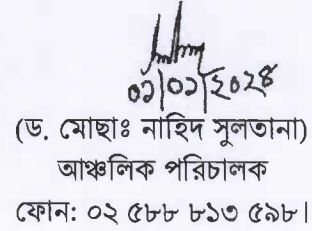 ০১|০১|২০২৪
(ড. মোছাঃ নাহিদ সুলতানা)
আঞ্চলিক পরিচালক
ফোন: ০২ ৫৮৮ ৮১৩ ৫৯৮।